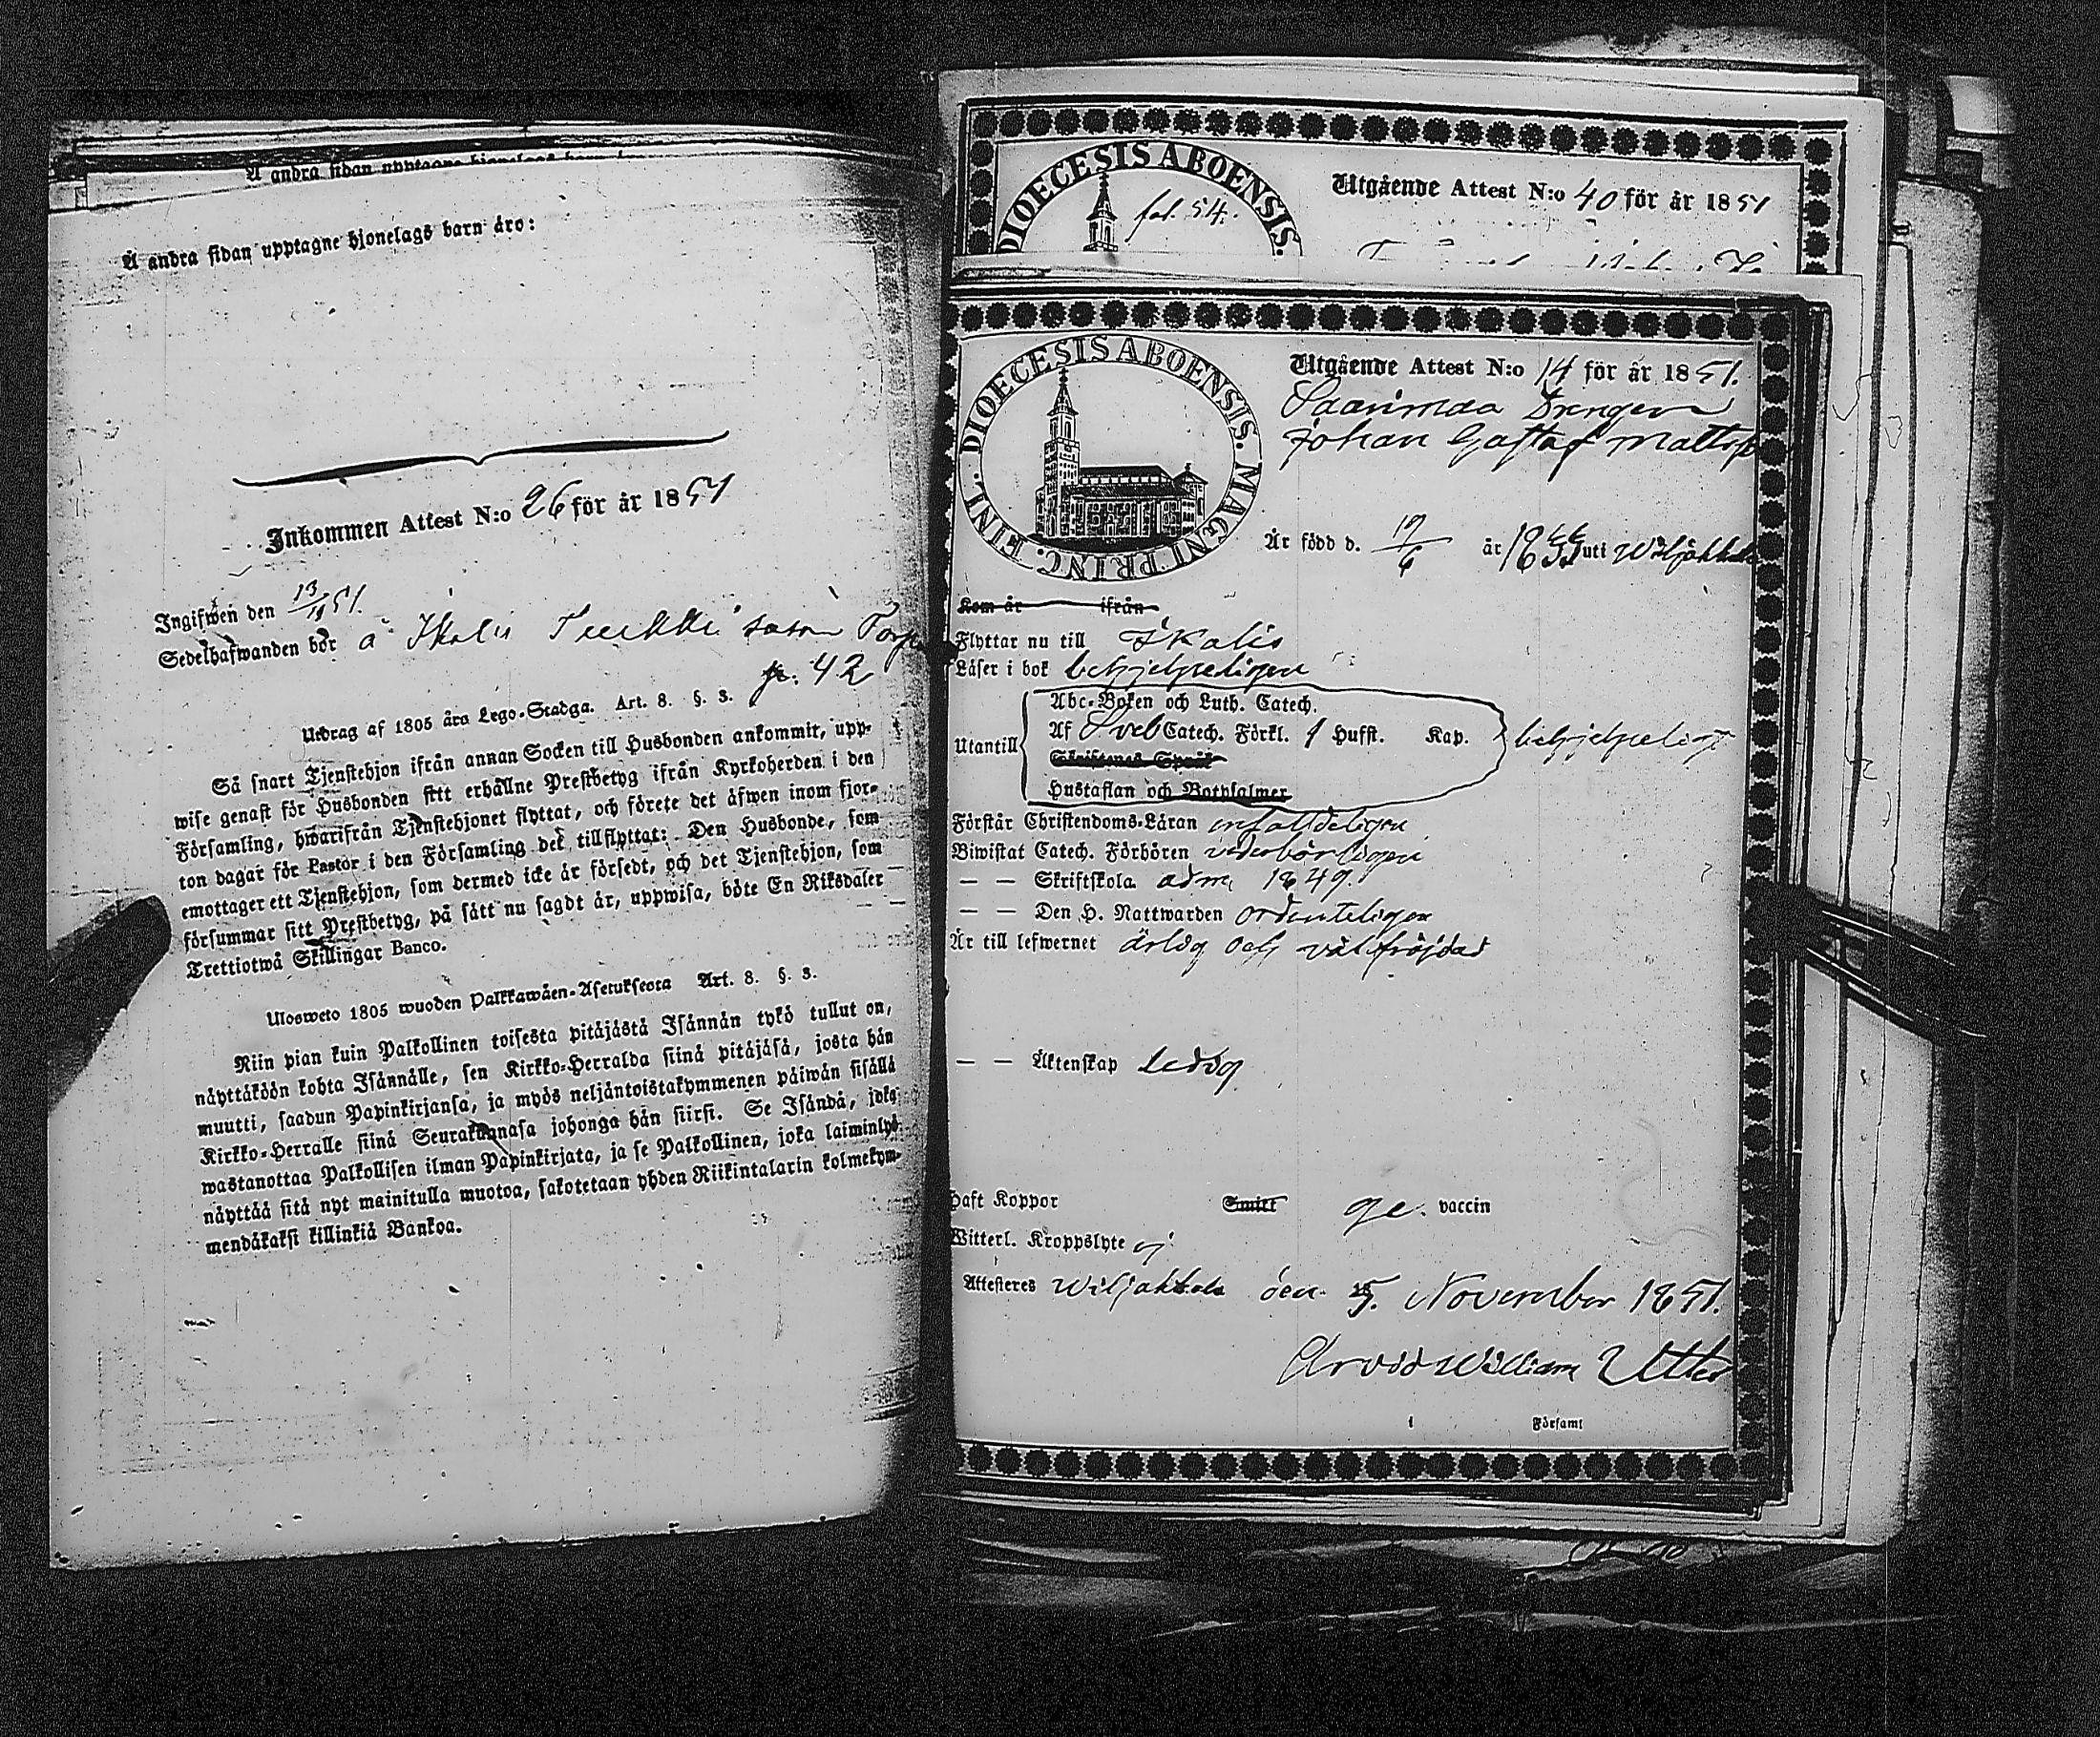 Å andra sidan upptagne hjonelags barn äro:
Å andra sidan upptagne hjonelags barn äro:
Inkommen Attest N:o 26 för år 1851
Ingifwen den 13/11 51.
Sedelhafwanden bör å Ikalis
p. 42
Utdrag af 1805 års Lego-Stadga. Art. 8. §. 3.
Så snart Tjenstehjon ifrån annan Socken till Husbonden ankommit, upp-
wise genast för Husbonden sitt erhållne Prestbetyg ifrån Kyrkoherden i den
Församling, hwarifrån Tjenstehjonet flyttat, och förete det äfwen inom fjor-
ton dagar för Pastor i den Församling det tillflyttat: Den Husbonde, som
emottager ett Tjenstehjon, som dermed icke är försedt, och det Tjenstehjon, som
försummar sitt Prestbetyg, på sätt nu sagdt är, uppwisa, böte En Riksdaler
Trettiotwå Skillingar Banco.
Ulosweto 1805 wuoden Palkkawäen-Asetuksesta Art. 8. §. 3.
Niin pian kuin Palkollinen toisesta pitäjästä Isännän tykö tullut on,
näyttäköön kohta Isännälle, sen Kirkko-Herralda siinä pitäjäsä, josta hän
muutti, saadun Papinkirjansa, ja myös neljäntoistakymmenen päiwän sisällä
Kirkko-Herralle siinä Seurakunnasa johonga hän siirsi. Se Isändä, joka
wastanottaa Palkollisen ilman Papinkirjata, ja se Palkollinen, joka laiminlyö
näyttää sitä nyt mainitulla muotoa, sakotetaan yhden Riikintalarin kolmekym-
mendäkaksi killinkiä Bankoa.
DIOECESIS ABOENSIS.
fol. 54.
Utgående Attest N:o 40 för år 1851
DIOECESIS ABOENSIS. MAGNI PRINC. FINL.
Utgående Attest N:o 14 för år 1851.
Saarimaa Drengen
Johan Gustaf Matts
Är född d. 19/6 år 1833 uti Wiljakkala
Kom år ifrån
Flyttar nu till Ikalis
Läser i bok behjelpeligen
Utantill
Abc-Boken och Luth. Catech.
Af Sveb Catech. Förkl. 1 Hufst. Kap.
Skriftenes Språk
Hustaflan och Botpsalmer
behjelpeligt
Förstår Christendoms-Läran enfaldeligen
Biwistat Catech. Förhören vederbörligen
— — Skriftskola adm. 1849.
— — Den H. Nattwarden ordenteligen
Är till lefwernet ärlig och välfrejdad
— — Äktenskap Ledig
Haft Koppor Smitt ge. vaccin
Witterl. Kroppslyte ej
Attesteres Wiljakkala den 5. November 1851.
Arvid William Utter
i Församl